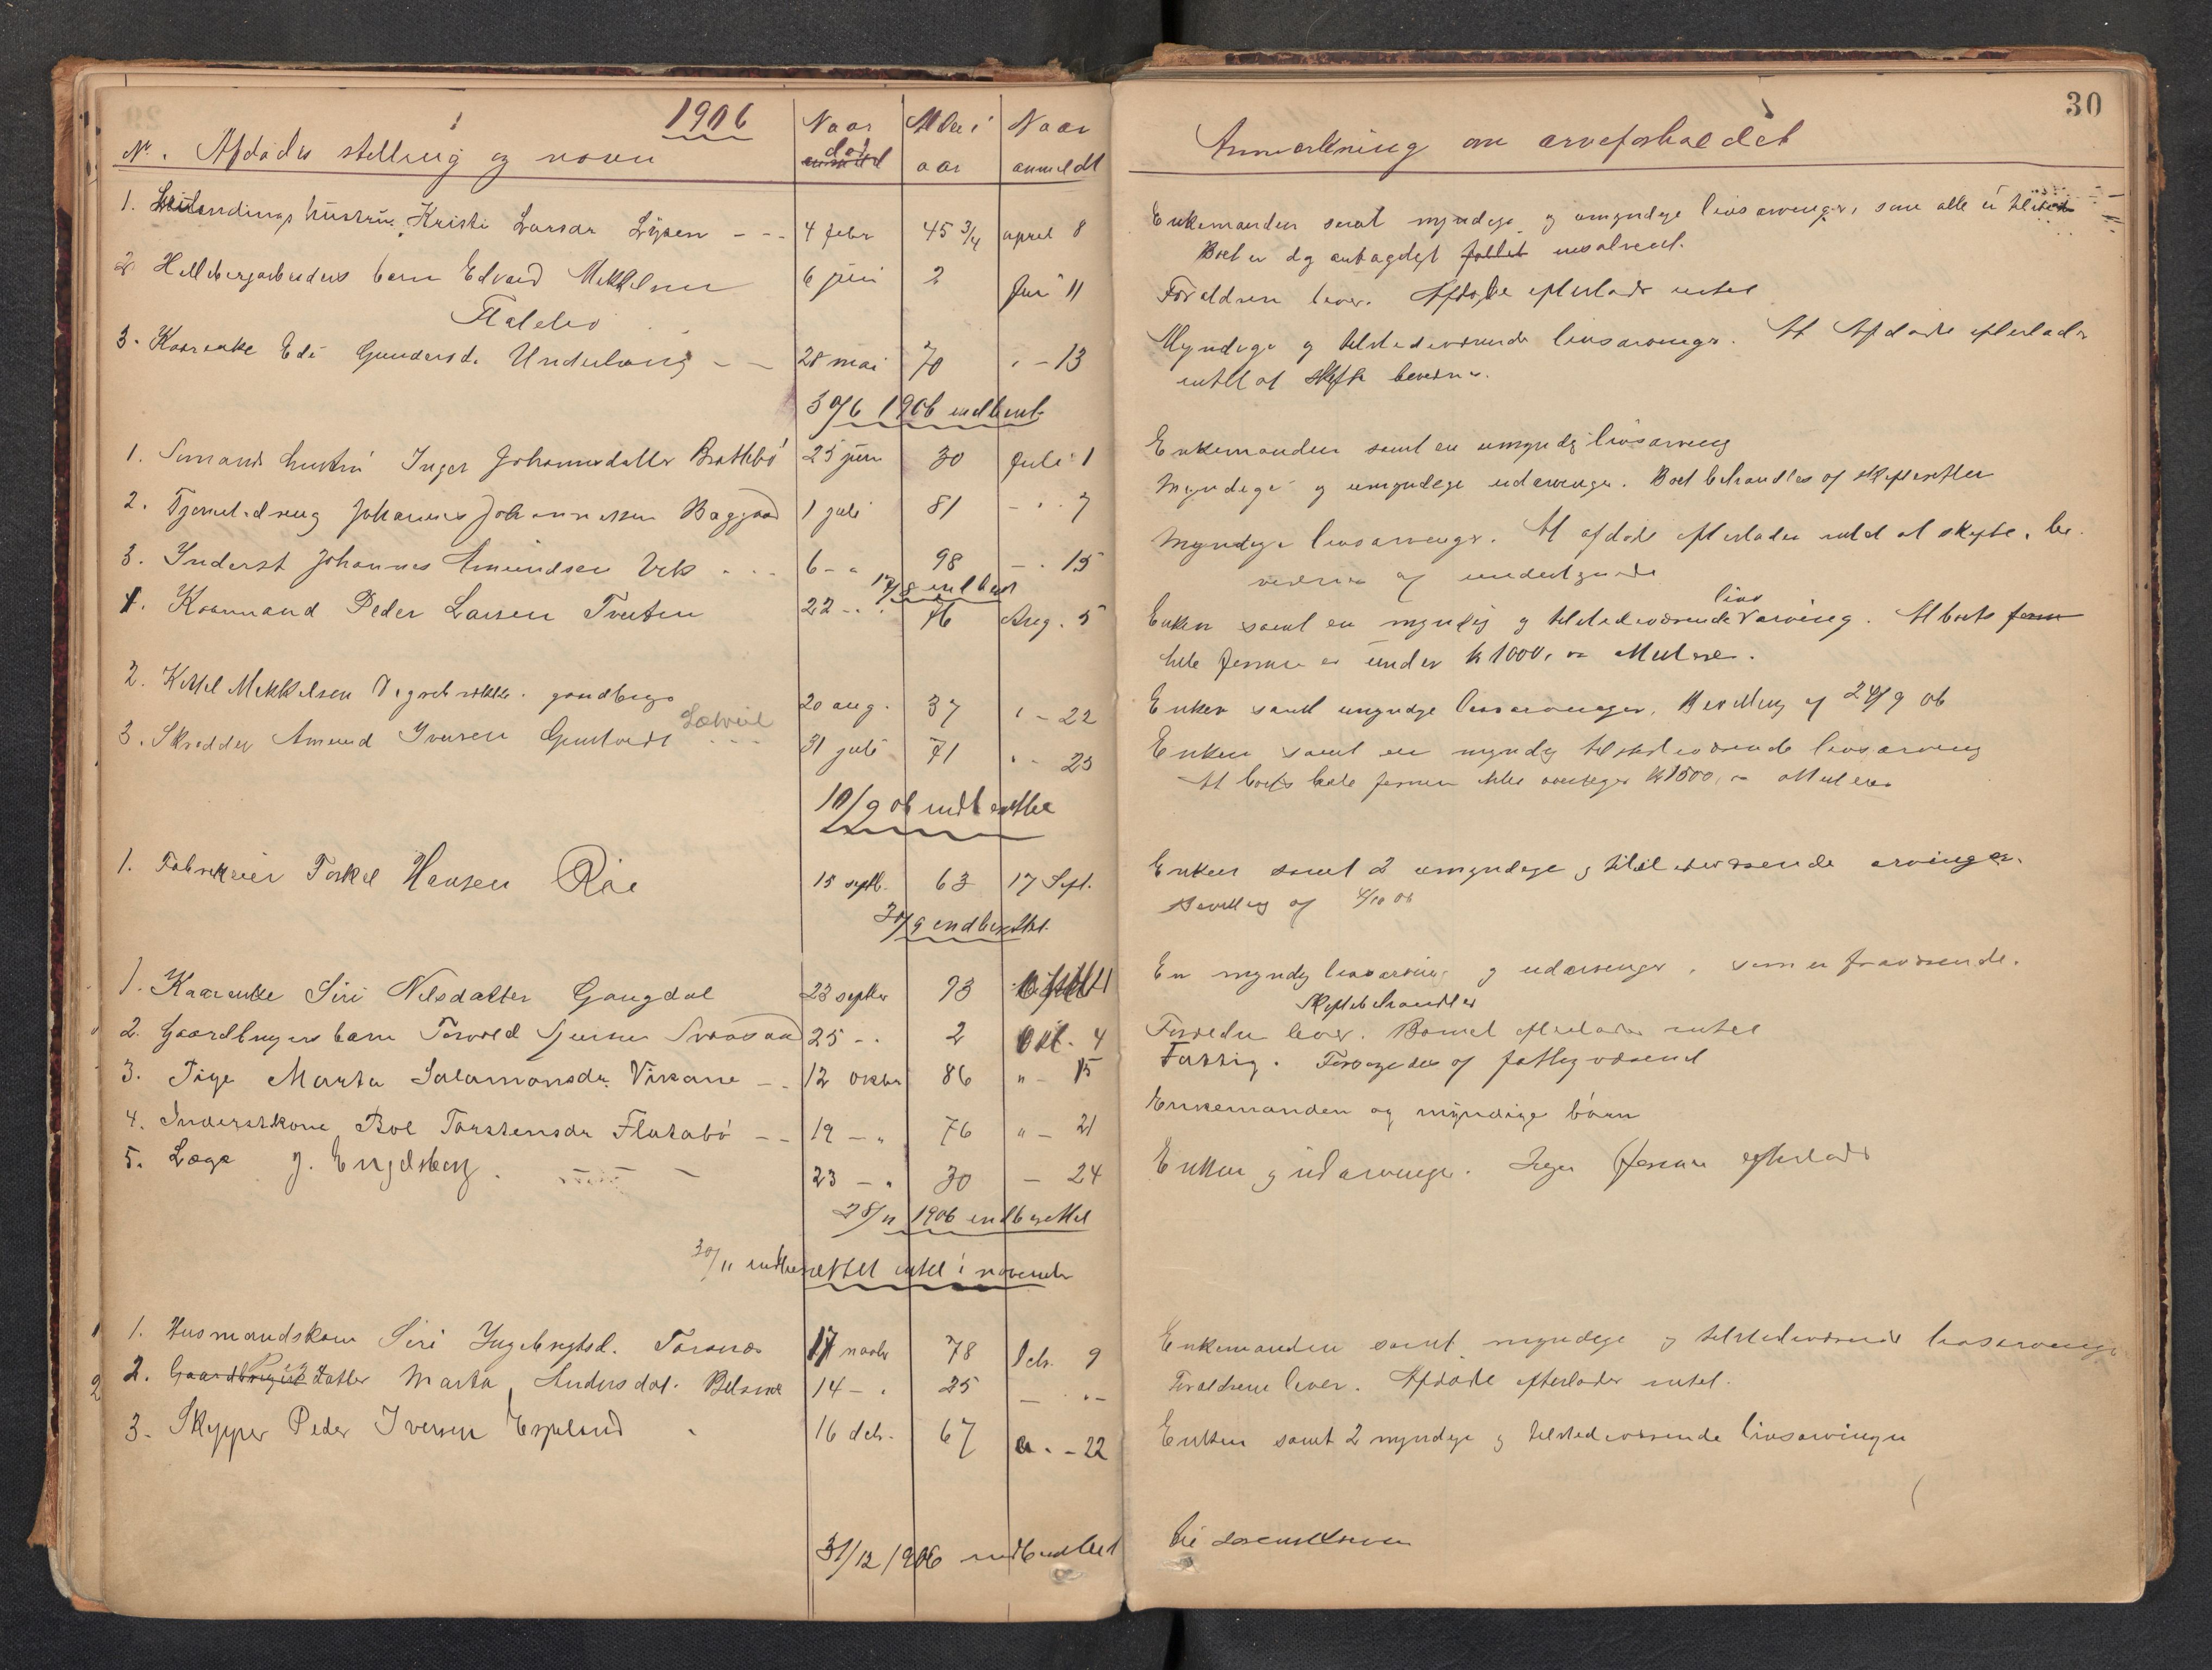 1906
Nr. Afdødes stilling og navn
Naar død
Alder i aar
Naar anmeldt
1. hustru Kristi Larsdr Lysen - - 4 febr 45 3/4 april 8
2. barn Edvard Mikkelsen 6 juni 2 Juni 11
Flatebø
3. Kaarenke Edi Gundersd. Underhaug - - 28 mai 70 " - 13
30/6 1906 indberet
1. Sømands hustru Inger Johannesdatter Brattebø 25 juni 30 Juli 1
2. Tjenestedreng Johannes Johannessen Baggaard 1 juli 81 - " 7
3. Inderst Johannes Amundsen Vik . . . 6 - " 98 - " 15
17/8 indberet
1. Kaarmand Peder Larsen Tveiten 22 - " 76 Aug. 5
2. Kittel Mikkelsen gaardbruger 20 aug. 37 " - 22
3. Skrædder Amund Iversen 31 juli 71 " - 23
10/9 06 indberettet
1. Fabrikeier Torkel Hansen Røe 15 septb. 63 17 Sept.
30/9 indberettet
1. Kaarenke Siri Nilsdatter Gangdal 23 septbr 93
2. Gaardbrugers barn Torvald 25 - " 2 Okt. 4
3. Pige Marta Salamonsdr. Vikane - - 12 oktbr 86 " - 15
4. Inderstkone Boe Torstensdr Flatabø - - 19 - " 76 " - 21
5. Læge J. Engelsberg. 23 - " 30 - 24
28/11 1906 indberettet
30/11 indberettet intet i november
1. Husmandskone Siri Ingebrigtsd. Torsnes 17 novbr 78 Dcb. 9
2. Pige datter Marta Andersdat. 14 - " 25 - " -
3. Skipper Peder Iversen Espeland 16 dcb. 67 " - 22
31/12 1906 indberettet
30
Anmerkning om arveforholdet
Enkemanden samt myndige og umyndige livsarvinger, som alle er
Boet er dog antageligt insolvent.
Forældrene lever. Afdøde efterlader intet
Myndige og tilstedeværende livsarvinger. At Afdøde efterlader
intet at skifte bevidnes.
Enkemanden samt en umyndig livsarving
Myndige og umyndige udarvinger. Boet behandles af skifteretten
Myndige livsarvinger. At afdøde efterlader intet at skifte, be-
vidnes af undertegnede
Enken samt en myndig og tilstedeværende livsarving. At boets
hele formue er under kr 1000,
Enken samt umyndige livsarvinger. Bevilling af 24/9 06
Enken samt en myndig tilstedeværende livsarving
At boets hele formue ikke overstiger kr 1500,
Enken samt 2 umyndige og tilstedeværende arvinger.
Bevilling af 4/10 06
En myndig livsarving og udarvinger, som er fraværende.
Skiftebehandles
Forældre lever. Barnet efterlader intet
Fattig. Forsørgedes af fattigvæsenet
Enkemanden og myndige børn
Enken og udarvinger. Ingen formue efterlades
Enkemanden samt myndige og tilstedeværende livsarvinger
Forældrene lever. Afdøde efterlader intet.
Enken samt 2 myndige og tilstedeværende livsarvinger